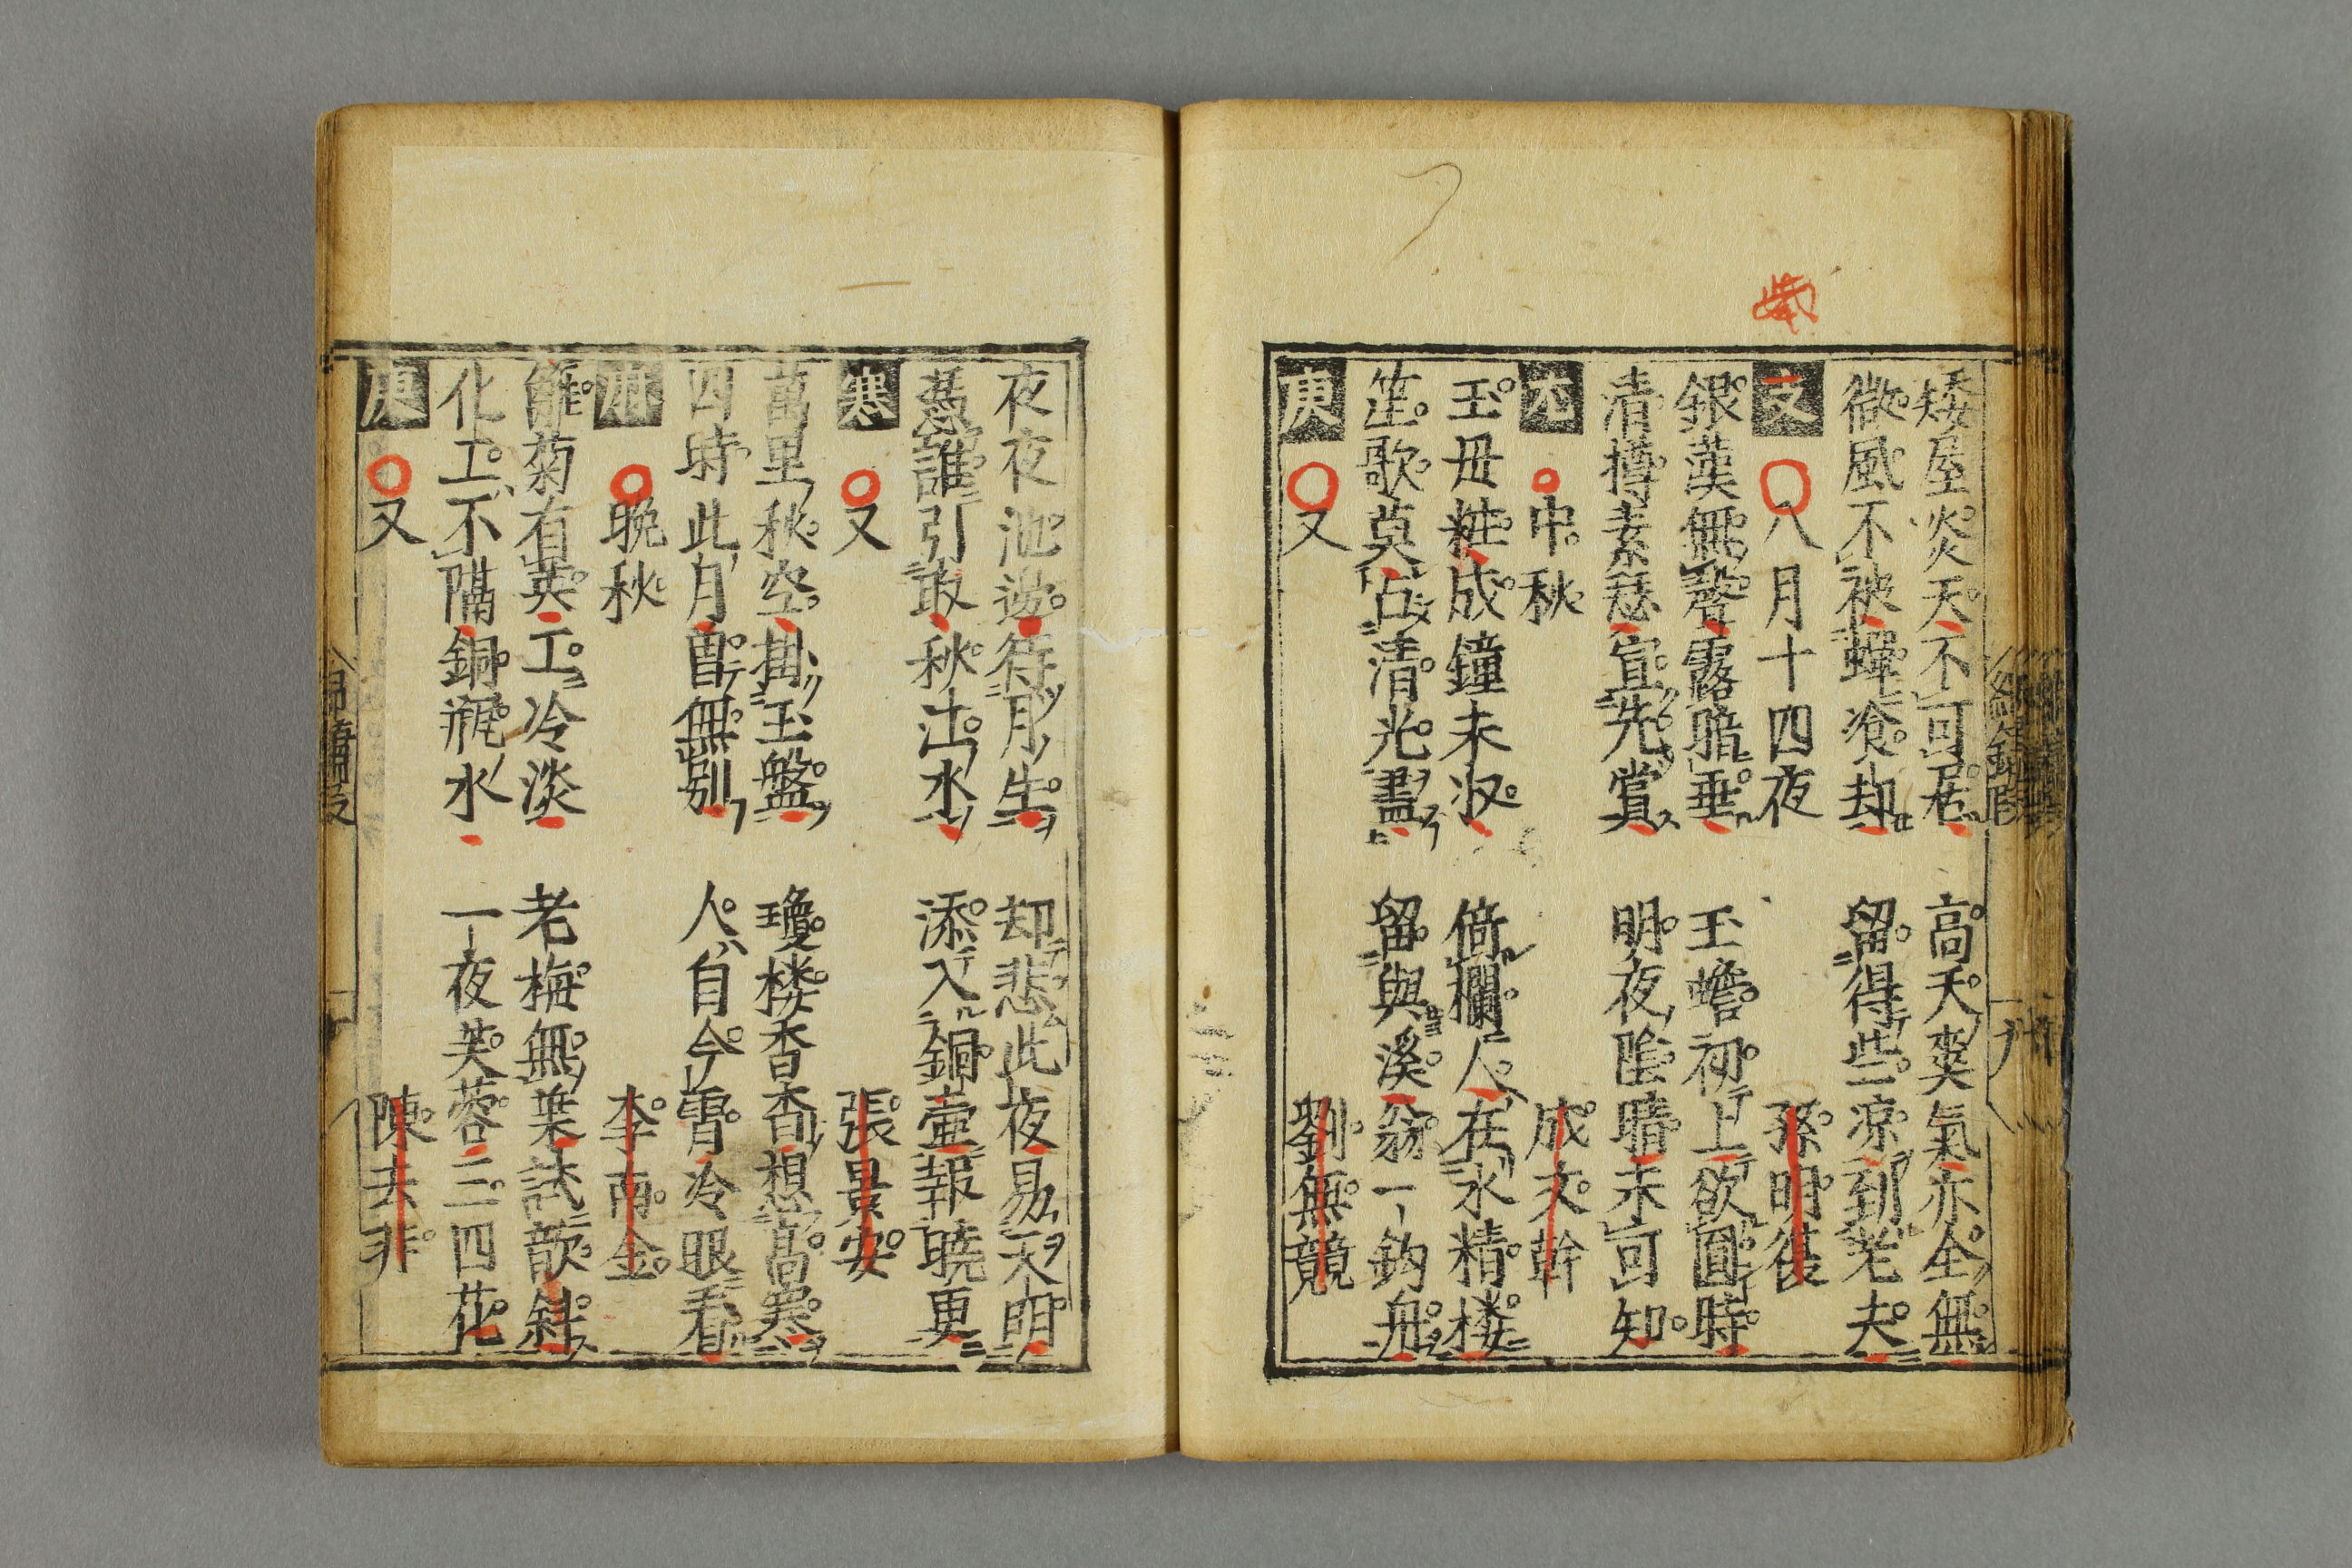 矮屋炎天不可居 高天爽氣亦全無
微風不被蟬飡却 留得些涼到老夫
支 八月十四夜 孫明復
銀漢無聲露暗垂 玉蟾初上欲圓時
清樽素瑟宜先賞 明夜陰晴未可知
尤 中秋 成文幹
玉毋粧成鐘未収 倚欄人在水精楼
笙歌莫占清光盡 留與溪翁一釣舟
庚 又 劉無競
夜夜池邊待月生 却悲此夜易天明
憑誰引取秋江水 添入銅壷報曉更
寒 又 張景安
萬里秋空掛玉盤 瓊楼杳杳想高寒
四時此月曽無別 人自今霄冷眼看
晩秋 李南金
籬菊有英工冷淡 老梅無葉試欹斜
化工不隔銅瓶水 一夜芙蓉三四花
庚 又 陳去非